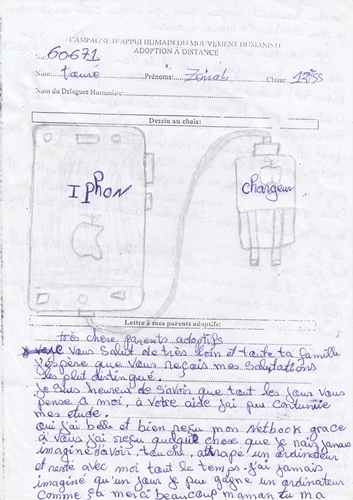 CAMPAGNE D'APPUI HUMAIN DU MOUVEMENT HUMANISTE
ADOPTION À DISTANCE
60671
Nom: toure Prénoms: Zeinab Classe 12ESS
Nom du Délégué Humaniste:
Dessin au choix:
IPhON
chargeur
Lettre à mes parents adoptifs:
très chere parents adoptifs
Vous Salut de très loin et toute ta famille
j'éspère que Vous Reçois mes Salutations
les plut distingué.
Je Suis heureux de Savoir que tout les jour Vous
pense a moi, à Votre aide j'ai pue continuée
mes étude.
oui j'ai belle et bien reçu mon Netbook grace
à Vous j'ai reçu quelque chose que je n'ais jamais
imaginé d'avoir, touché, attrape un ordinateur
et resté avec moi tout le temps. j'ai jamais
imaginé qu'un jour je pué gagne un ordinateur
comme ça merci beaucoup maman tu ma